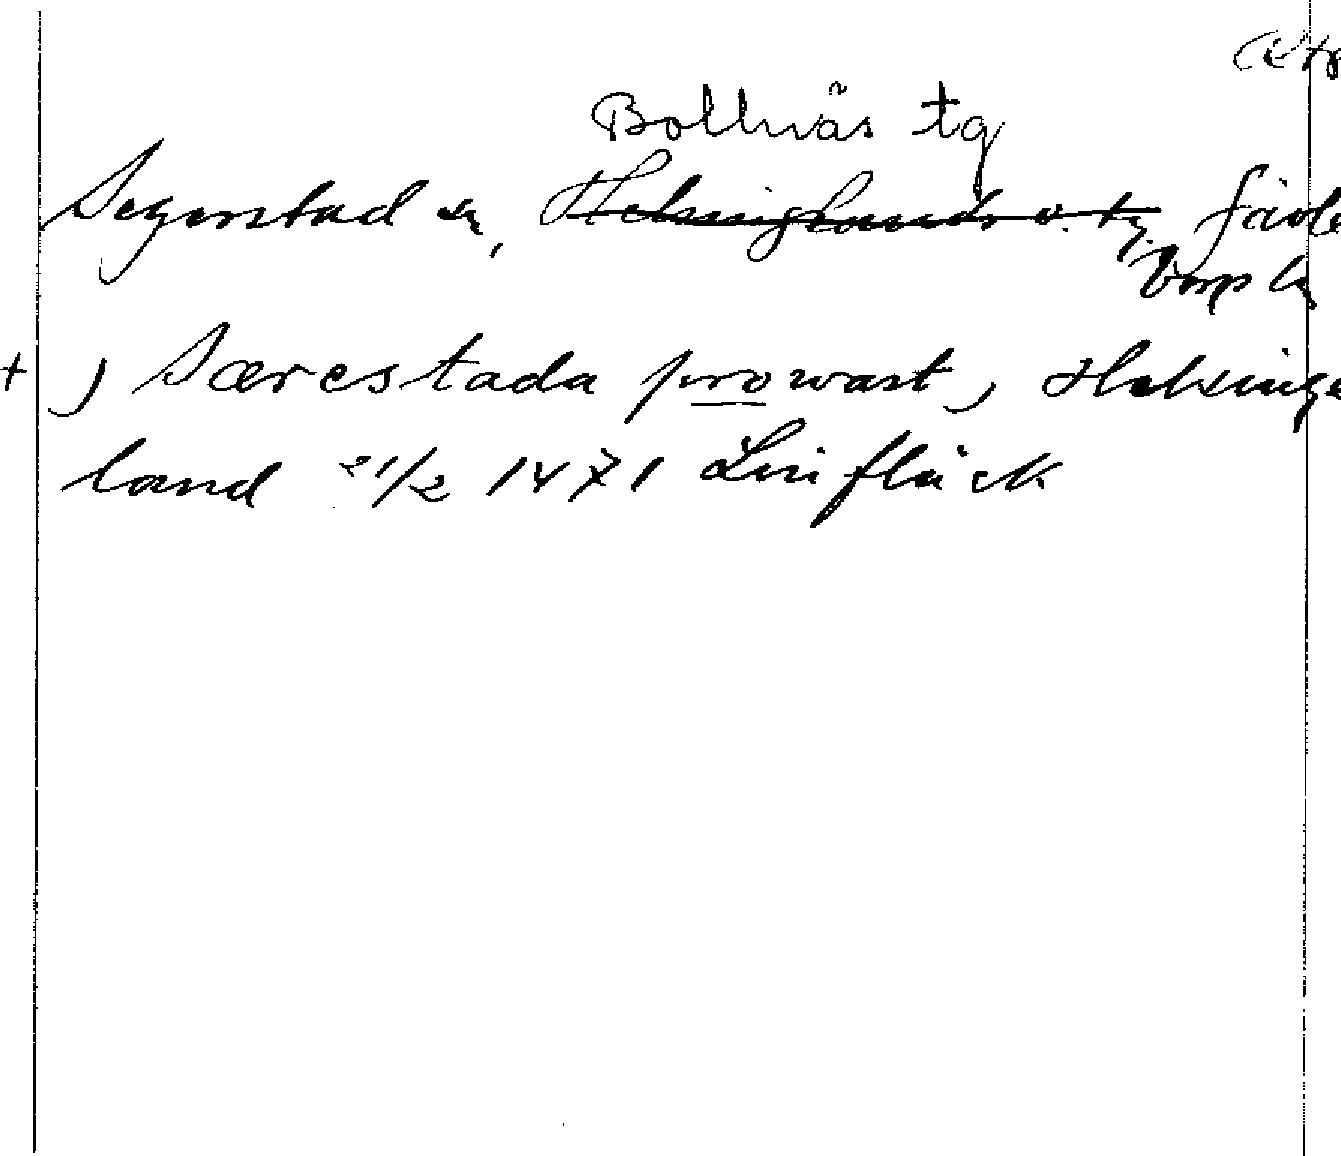 Bollnäs tg
Segerstad sn, Helsinglands v. tg. Gävle
+) Særestada prowast, Helsinge
land 21/2 1471 Linflück